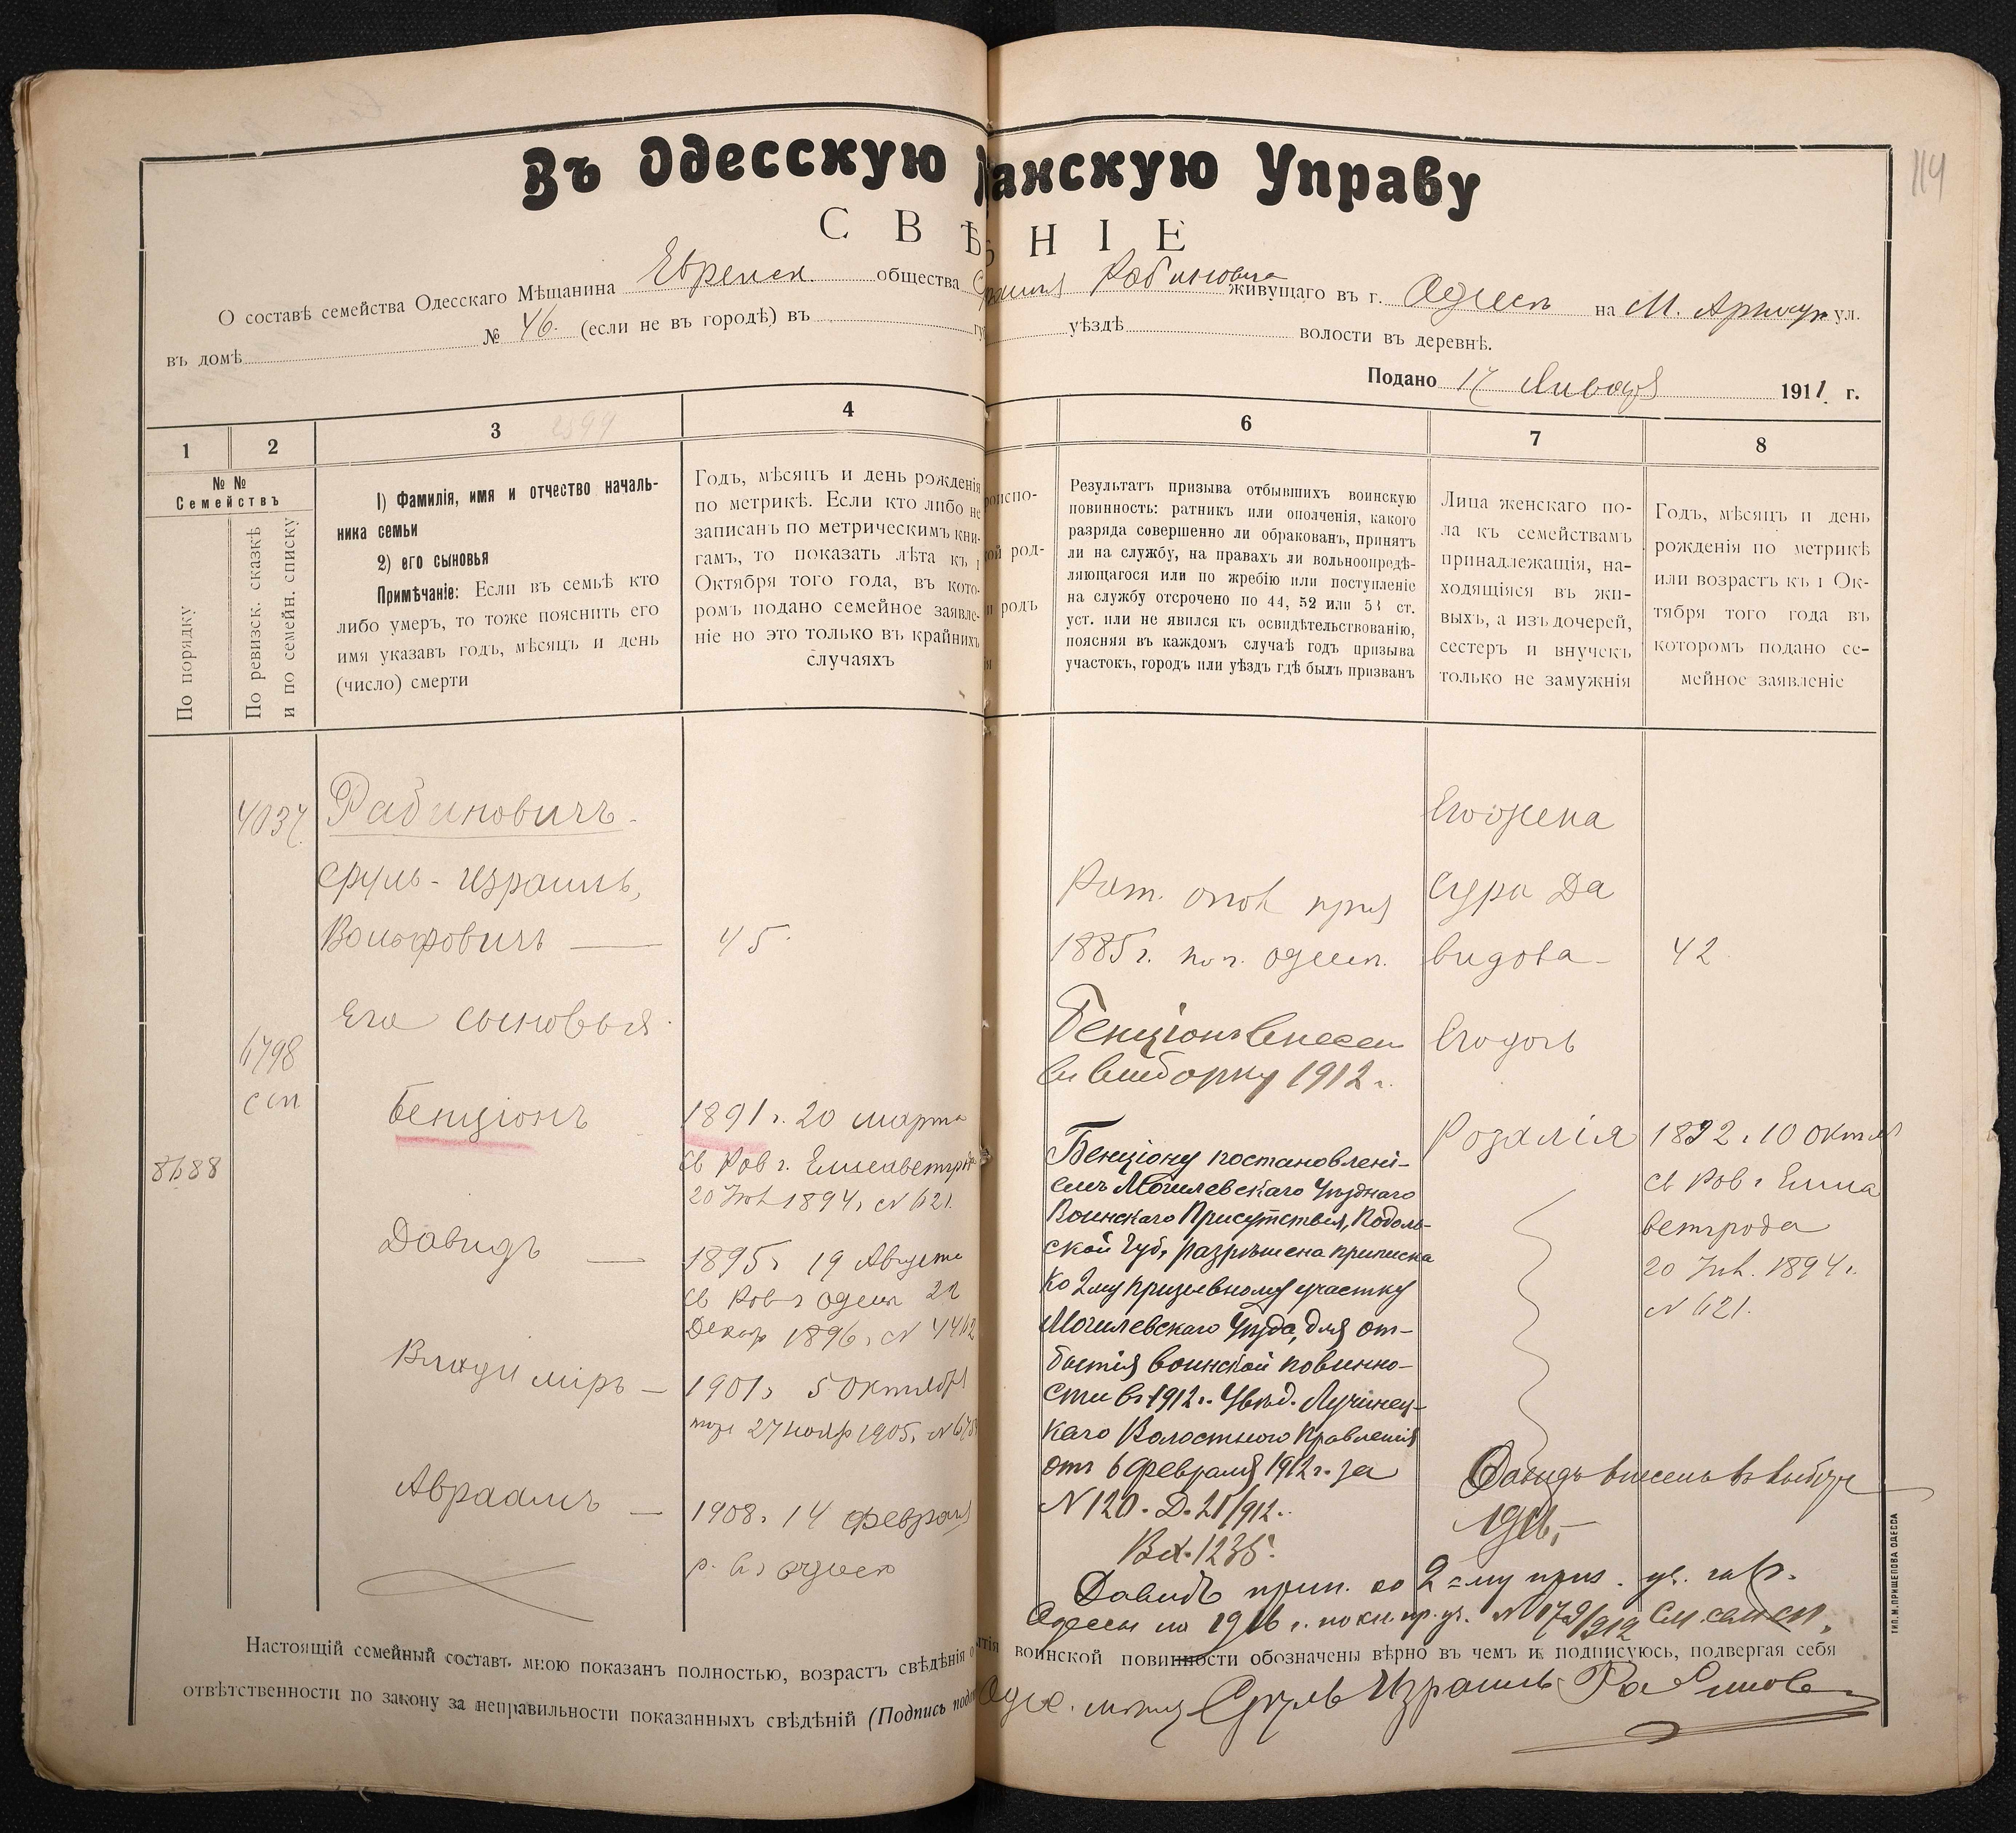 114
Въ Одесскую анскую Управу
СВѢНІЕ
О составѣ семейства Одесскаго Мѣщанина Еврейск. общества Рабиновича живущаго въ г. Одессѣ на М. Арнаут ул.
въ домѣ № 46. (если не въ городѣ) въ уѣздѣ волости въ деревнѣ.
Подано 17 Января 1911 г.
1 2 3 4 6 7 8
2594
№ №
Семействъ
По порядку
По ревизск. сказкѣ
и по семейн. списку
1) Фамилія, имя и отчество началь-
ника семьи
2) его сыновья
Примѣчаніе: Если въ семьѣ кто
либо умеръ, то тоже пояснить его
имя указавъ годъ, мѣсяцъ и день
(число) смерти
Годъ, мѣсяцъ и день рожденія
по метрикѣ. Если кто либо не
записанъ по метрическимъ кни-
гамъ, то показать лѣта къ 1
Октября того года, въ кото-
ромъ подано семейное заявле-
ніе но это только въ крайнихъ
случаяхъ
роиспо-
ой род-
и родъ
Результатъ призыва отбывшихъ воинскую
повинность: ратникъ или ополченія, какого
разряда совершенно ли обракованъ, принятъ
ли на службу, на правахъ ли вольноопредѣ-
ляющагося или по жребію или поступленіе
на службу отсрочено по 44, 52 или 53 ст.
уст. или не явился къ освидѣтельствованію,
поясняя въ каждомъ случаѣ годъ призыва
участокъ, городъ или уѣздъ гдѣ былъ призванъ
Лица женскаго по-
ла къ семействамъ
принадлежащія, на-
ходящіяся въ жи-
выхъ, а изъ дочерей,
сестеръ и внучекъ
только не замужнія
Годъ, мѣсяцъ и день
рожденія по метрикѣ
или возрастъ къ 1 Ок-
тября того года въ
которомъ подано се-
мейное заявленіе
4037
Рабиновичъ
Сруль-Израиль,
Вольфовичъ
45
Его сыновья
6798
сп
8688
Бенціонъ
1891 г. 20 марта
св Рав г. Елисаветгр
20 Інв 1894, № 621.
Давидъ
1895 г. 19 Августа
св Рав г Одесс 22
Декабр 1896,
Владиміръ
1901, 5 Октября
27 нояб 1905,
Авраамъ
1908, 14 Февраля
р. въ Одессѣ
Рат. опол приз
1885 г. по г. Одесс.
Бенціонъ внесен
въ выборку 1912 г.
Бенціону постановлені-
емъ Могилевскаго Уѣзднаго
Воинскаго Присутствія, Подоль-
ской Губ, разрѣшена приписка
ко 2му призывному участку
Могилевскаго Уѣзда, для от-
бытія воинской повинно-
сти въ 1912 г. Увѣд. Лучинец-
каго Волостного Правленія
отъ 6 февраля 1912 г. за
№ 120. Д. 21/912.
Вх. 1235.
Его жена
Сура Да
видова
42
Его дочь
Розалія
1892, 10 октяб
св Рав г Елиса
ветграда
20 Інв. 1894 г.
№ 621.
Давидъ внесенъ въ выбор
1916,
Давидъ прип. ко 2-му приз. уч. гор.
Одессы на 1916 г. по кн. пр. уч. № 179/912 См. сем сп.
Настоящій семейный составъ мною показанъ полностью, возрастъ свѣдѣнія о тія воинской повинности обозначены вѣрно въ чемъ и подписуюсь, подвергая себя
отвѣтственности по закону за неправильности показанныхъ свѣдѣній (Подпись под Одес. мѣщ Сруль Израиль Рабинов
ТИП. М. ПРИЩЕПОВА ОДЕССА